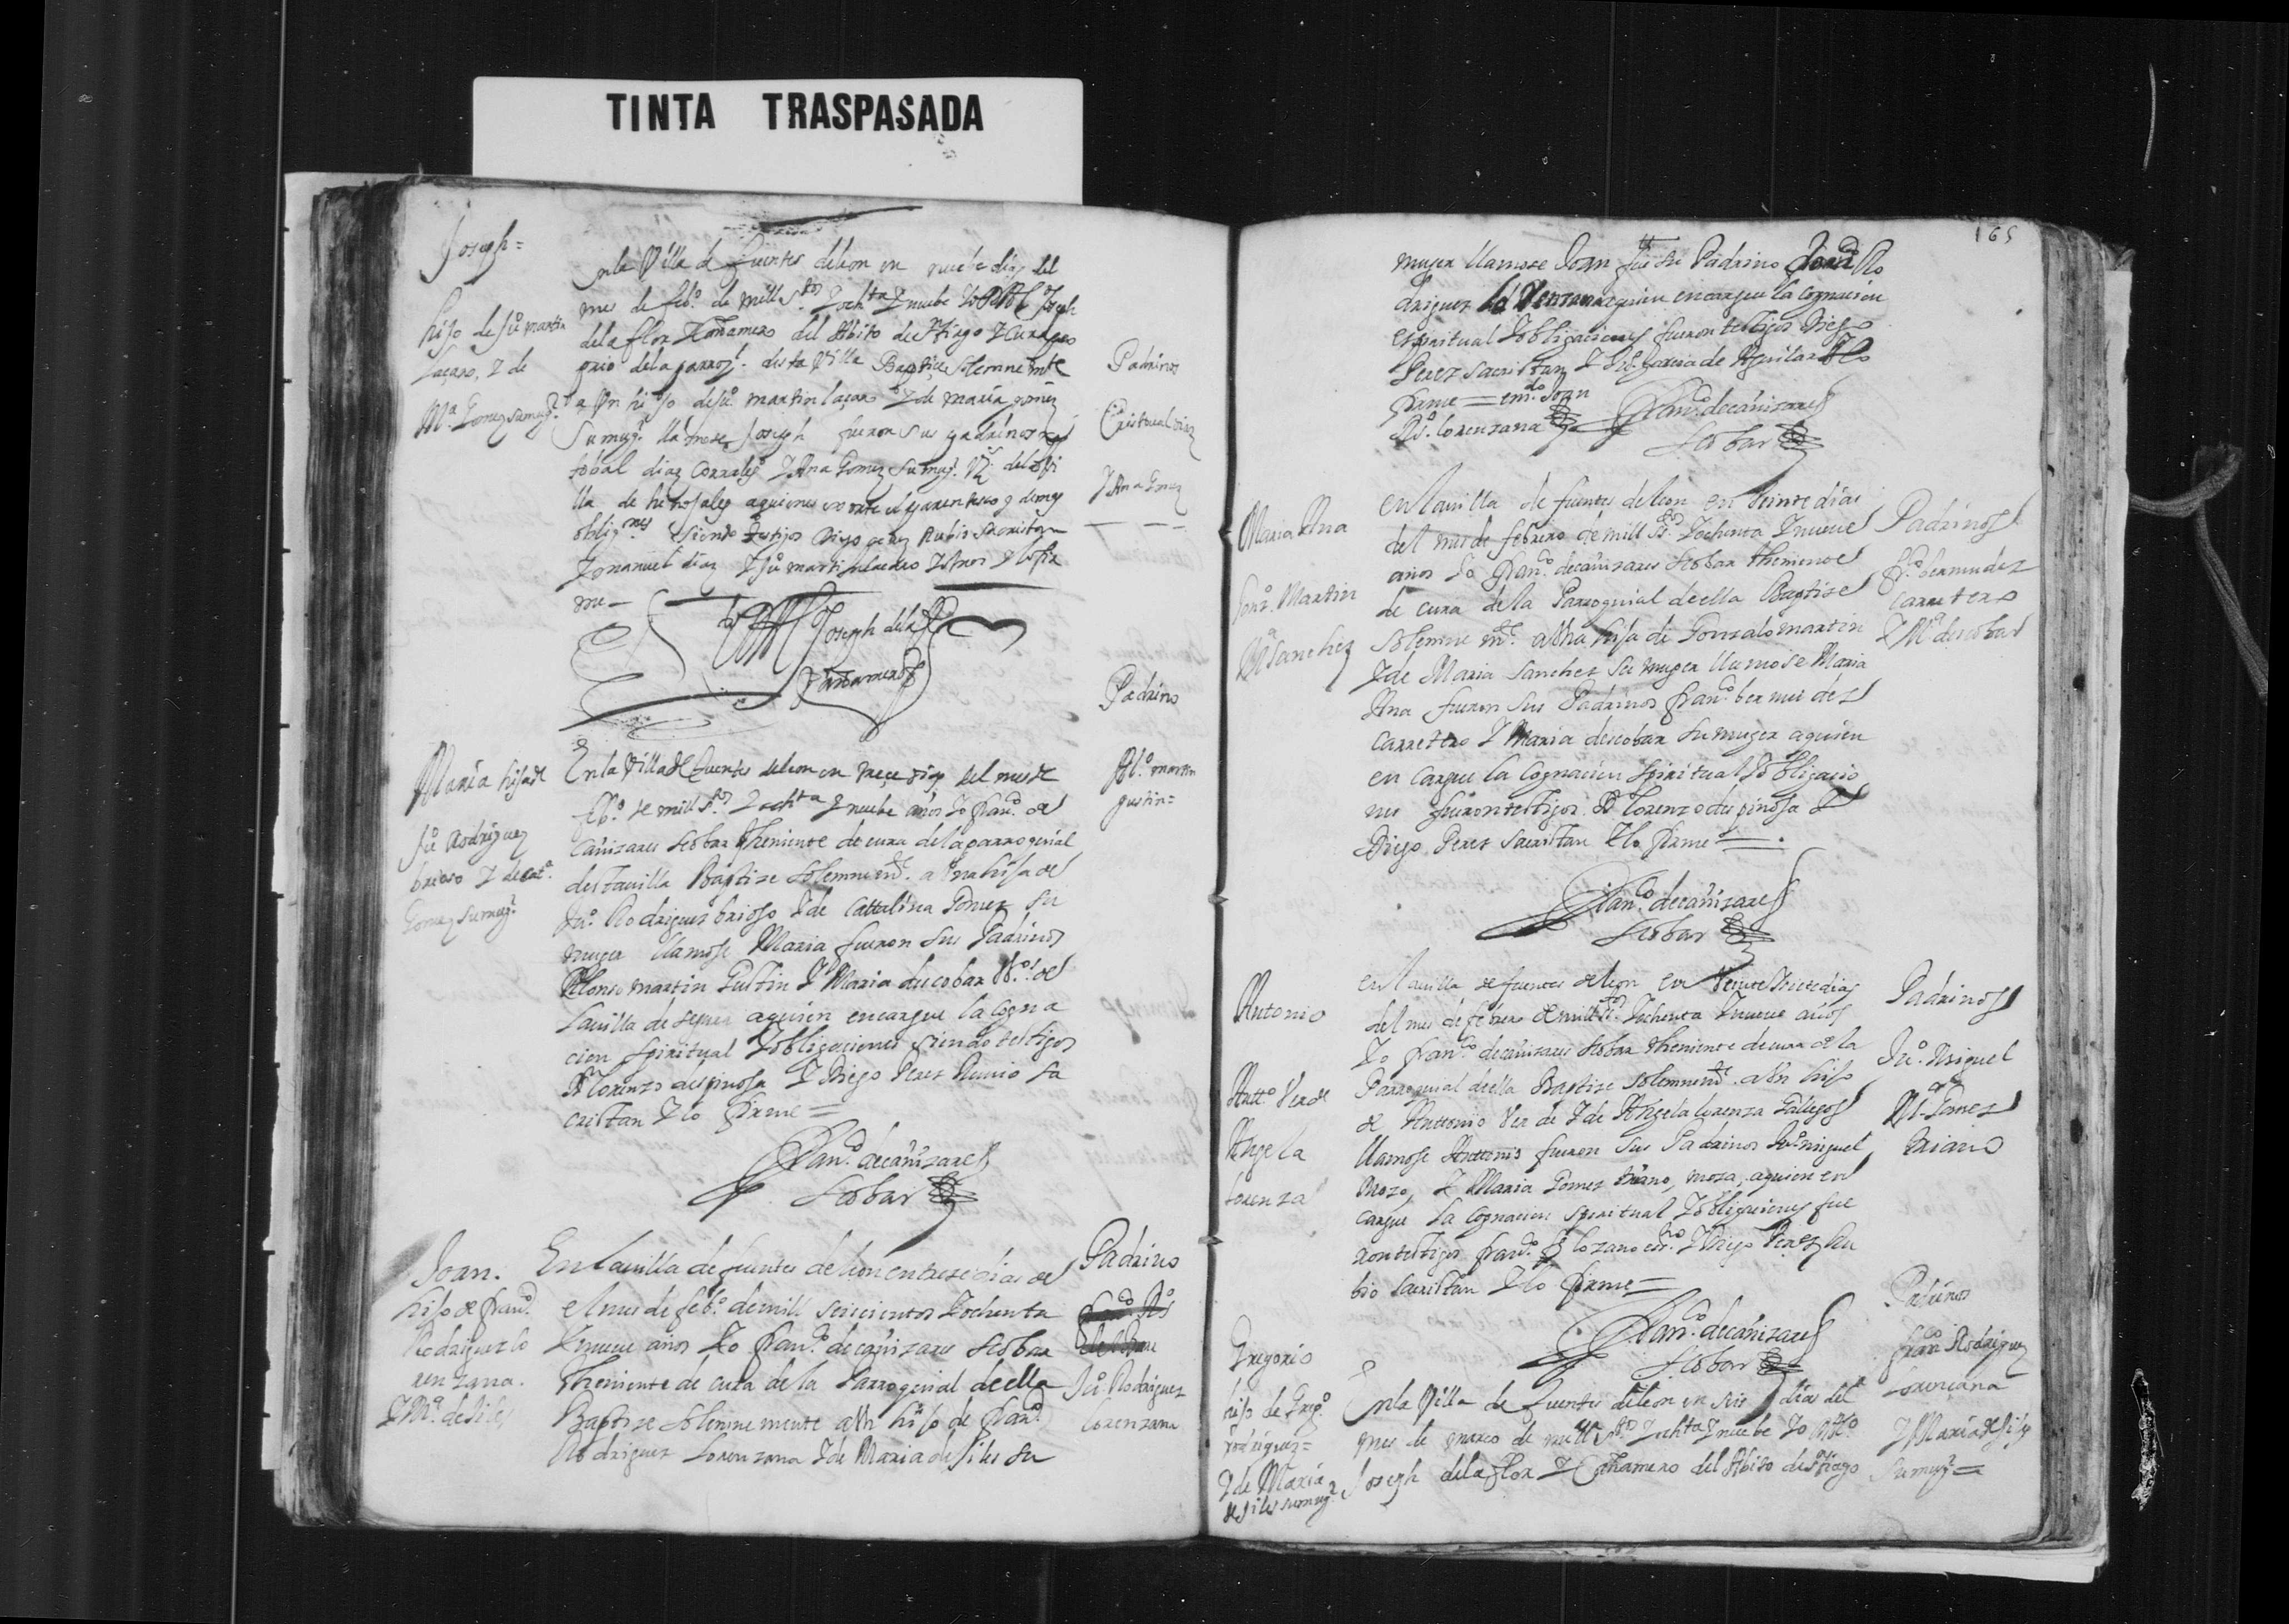 TINTA TRASPASADA
Joseph =
hijo de Ju.º martin
laçaro, Y de
M.ª Gomez su mug.r
En la Villa de Fuentes de leon en nuebe dias del
mes de feb.º de mill s.tos Y och.ta Y nuebe Yo Joseph
de la flor del Abito de S.tiago Y Cura pro
prio de la parroq.l desta Villa Baptiçe Solemnem.te
a Vn hijo de Ju.º martin laçaro Y de maria gomez
Su mug.r llamose Joseph fueron sus padrinos
tobal diaz Corrales Y Ana Gomez su mug.r
lla de aquienes el parentesco y demas
oblig.nes Siendo testigos Diego perez Rubio Sacristan
Y manuel diaz Y Ju.º martin Y lo fir
me =
Joseph de la flor
Padrinos
Cristoual diaz
Y Ana Gomez
Maria hija de
Ju.º Rodriguez
brioso Y de cat.ª
Gomez su mug.r
En la Villa de Fuentes de leon en treçe dias del mes de
feb.º de mill s.tos Y och.ta Y nuebe años Yo fran.co de
Cañizares scobar theniente de cura de la parroquial
desta uilla Baptize Solemnem.te a Vna hija de
Ju.º Rodriguez brioso Y de Cattalina Gomez su
muger llamose Maria fueron sus Padrinos
Alonso martin Gustin Y Maria descobar de
la uilla de segura aquien encargue la Cogna
cion spiritual Y obligaciones siendo testigos
D. lorenzo despinosa Y Diego Perez Ruuio sa
cristan Y lo firme =
Fran.co de cañizares
Scobar
Padrino
Al.º martin
gustin =
Joan.
hijo de fran.co
Rodriguez lo
renzana.
Y M.ª de siles
En la uilla de fuentes de leon en trese dias de
el mes de feb.º de mill seiscientos Y ochenta
Y nueue años Yo fran.co de cañizares scobar
theniente de cura de la Parroquial de ella
Baptize Solemnemente a Vn hijo de fran.co
Rodriguez Lorenzana Y de Maria de siles su
Padrino
Ju.º Rodriguez
Lorenzana
165
muger llamose Joan fue su Padrino Joan Ro
driguez aquien encargue la Cognacion
espiritual Y obligaciones fueron testigos Diego
Perez sacristan Y garcia de Aguilar Y lo
firme = em.do Joan
Ro. lorenzana
Fran.co de cañizares
Scobar
Maria Ana
Gonz.º Martin
M.ª Sanchez
en la uilla de fuentes de leon en veinte dias
del mes de febrero de mill s.tos Y ochenta Y nueue
años Yo fran.co de cañizares scobar theniente
de cura de la Parroquial de ella Baptize
solemnem.te a Vna hija de Gonzalo martin
Y de Maria sanchez su muger llamose Maria
Ana fueron sus Padrinos fran.co bermudez
Carretero Y Maria descobar su muger aquien
encargue la Cognacion spiritual Y obligacio
nes fueron testigos D. lorenzo despinosa Y
Diego Perez sacristan Y lo firme =
Fran.co de cañizares
Scobar
Padrinos
Fr.co bermudez
Carretero
Y M.ª descobar
Antonio
Antt.º Verde
Angela
Lorenza
en la uilla de fuentes de leon en veinte Y siete dias
del mes de febrero de mill s.tos Y ochenta Y nueue años
Yo fran.co de cañizares scobar theniente de cura de la
Parroquial de ella Baptize solemnem.te a Vn hijo
de Anttonio Verde Y de Angela lorenza Gallegos
llamose Anttonio fueron sus Padrinos Ju.º miguel
mozo, Y Maria Gomez triano, moza, aquien en
cargue la Cognacion spiritual Y obligaciones fue
ron testigos fran.co lozano Y Diego Perez Ru
bio sacristan Y lo firme =
Fran.co de cañizares
Scobar
Padrinos
Ju.º Miguel
M.ª Gomez
triano
Gregorio
hijo de Greg.º
rodriguez =
Y de Maria
de siles su mug.r
En la Villa de Fuentes de leon en seis dias del
mes de março de mill s.tos Y och.ta Y nuebe Yo
Joseph de la flor Y del Abito de S.tiago
Padrinos
fran.co Rodriguez
Lorençana
Y Maria de siles
su mug.r =